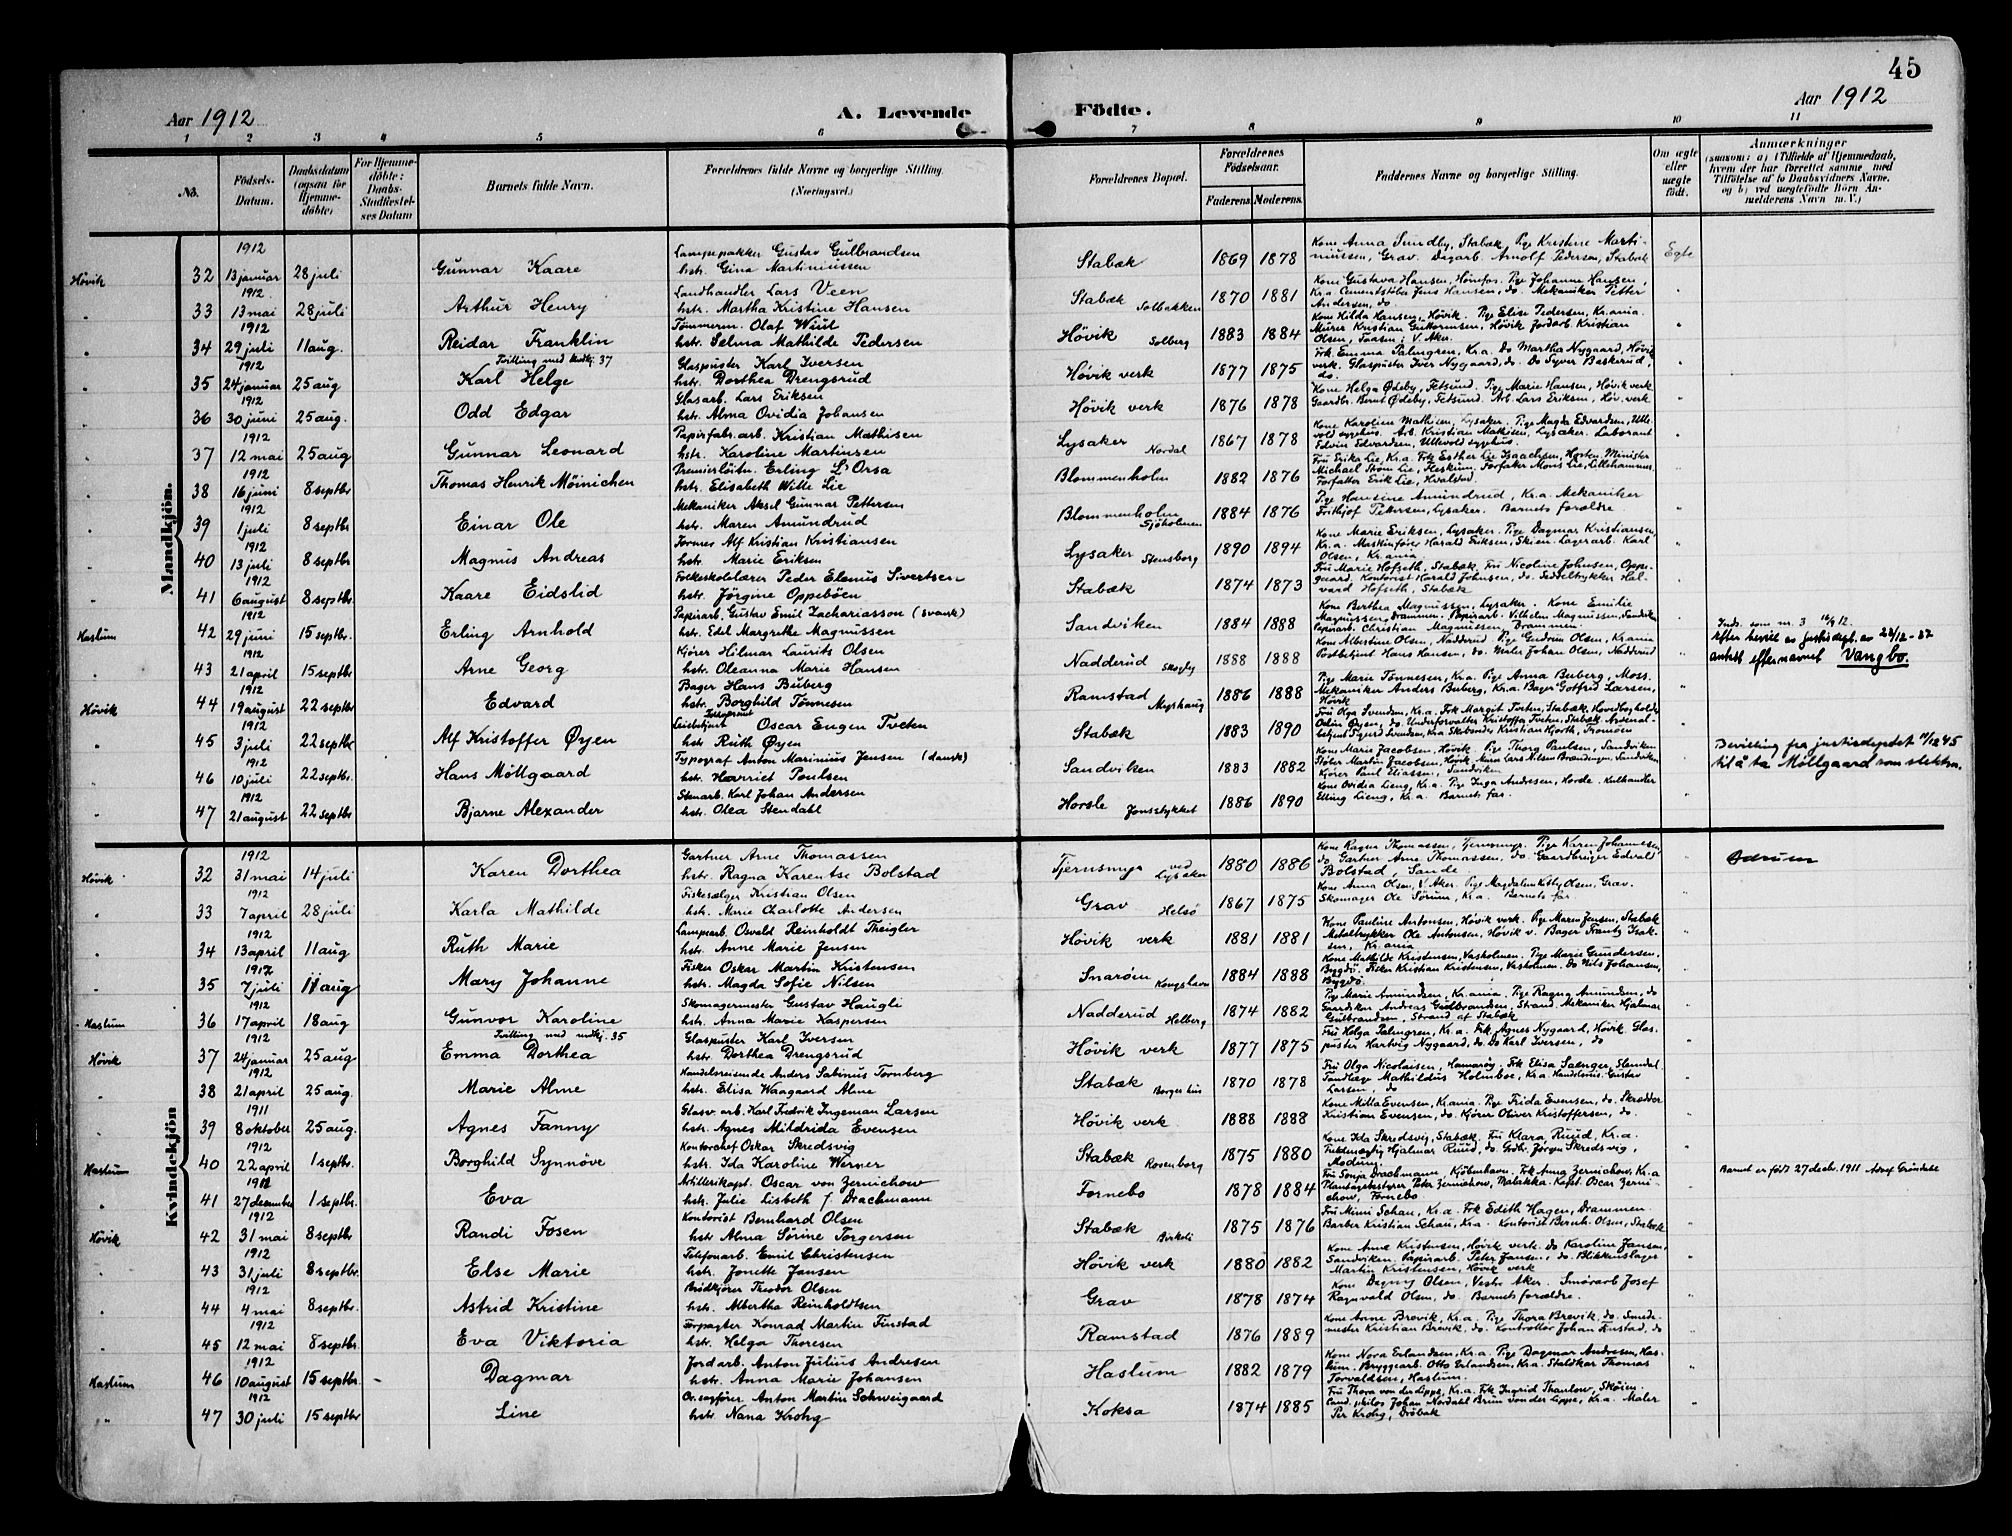 45
Aar 1912
A. Levende Födte.
Aar 1912
1 2 3 4 5 6 7 8 9 10 11
No.
Födsels-Datum.
Daabsdatum (ogsaa for Hjemmedöbte)
For Hjemmedöbte: Daabs-Stadfæstelses Datum
Barnets fulde Navn.
Forældrenes fulde Navne og borgerlige Stilling. (Næringsvei.)
Forældrenes Bopæl.
Forældrenes Födselsaar.
Faderens. Moderens.
Faddernes Navne og borgerlige Stilling.
Om ægte eller uægte födt.
Anmærkninger
(saasom: a) i Tilfælde af Hjemmedaab, hvem der har forrettet samme med Tilföielse af to Daabsvidners Navne, og b) ved uægtefödte Börn Anmelderens Navn m. V.)
Mandkjön.
Hövik 32 1912 13 januar 28 juli Gunnar Kaare Lampepakker Gustav Gulbrandsen hstr. Gina Martiniussen Stabæk 1869 1878 Kone Anna Sundby, Stabæk, Pige Kristine Martiniussen, Grav. Dagarb. Arnolf Pedersen, Stabæk Egte
" 33 1912 13 mai 28 juli Arthur Henry Landhandler Lars Veen hstr. Martha Kristine Hansen Stabæk Solbakken 1870 1881 Kone Gustava Hansen, Hönefos. Pige Johanne Hansen, Kr.a Cementstöber Jens Hansen, do. Mekaniker Petter Andersen, do "
" 34 1912 29 juli 11 aug. Reidar Franklin Tömmerm. Olaf Wiul hstr. Selma Mathilde Pedersen Hövik Solberg 1883 1884 Kone Hilda Hansen, Hövik. Pige Elise Pedersen, Kr.ania. Murer Kristian Guttormsen, Hövik Jordarb. Kristian Olsen, Taasen i V. Aker. "
" 35 1912 24 januar 25 aug Tvilling med kvdkj. 37 Karl Helge Glaspuster Karl Iversen hstr. Dorthea Drengsrud Hövik verk 1877 1875 Frk. Emma Palmgren, Kr.a do Martha Nygaard, Hövik verk. Glaspuster Iver Nygaard, do. Do Syver Baskerud, do. "
" 36 1912 30 juni 25 aug. Odd Edgar Glasarb. Lars Eriksen hstr. Alma Ovidia Johansen Hövik verk 1876 1878 Kone Helga Ödeby, Fetsund. Pige Marie Hansen, Hövik verk Gaardbr. Bernt Ödeby, Fetsund. Arb. Lars Eriksen, Höv. verk "
" 37 1912 12 mai 25 aug Gunnar Leonard Papirfabr. arb. Kristian Mathisen hstr. Karoline Martinsen Lysaker Nordal 1867 1878 Kone Karoline Mathisen, Lysaker. Pige Magda Edvardsen, Ullevold sygehus. Arb. Kristian Mathisen, Lysaker. Laborant Edvin Edvardsen, Ullevold sygehus. "
" 38 1912 16 juni 8 septbr Thomas Henrik Möinichen Premierlöitn. Erling L'Orsa hstr. Elisabeth Wille Lie Blommenholm 1882 1876 Fru Erika Lie, Kr.a. Frk Esther Lie Isaachsen, Horten, Minister Michael Strøm Lie, Heskium. Forfatter Mons Lie, Lillehammer. Forfatter Erik Lie, Hvalstad. "
" 39 1912 1 juli 8 septbr Einar Ole Mekaniker Aksel Gunnar Pettersen hstr. Maren Amundrud Blommenholm Sjöholmen 1884 1876 Pige Hansine Amundrud, Kr.a. Mekaniker Frithjof Pettersen, Lysaker. Barnets forældre. "
" 40 1912 13 juli 8 septbr Magnus Andreas Former Alf Kristian Kristiansen hstr. Marie Eriksen Lysaker Stensborg 1890 1894 Kone Marie Eriksen, Lysaker. Pige Dagmar Kristiansen, Kr.a. Maskinfører Harald Eriksen, Skien. Lagerarb. Karl Olsen, Kr.ania. "
" 41 1912 6 august 8 septbr. Kaare Eidslid Folkeskolelærer Peder Elenus Sivertsen hstr. Jörgine Oppebøen Stabæk 1874 1873 Fru Marie Hofseth, Stabæk, Fru Nicoline Johnsen, Oppegaard, Kontorist Harald Johnsen, do. Seddeltrykker Halvard Hofseth, Stabæk "
Haslum 42 1912 29 juni 15 septbr. Erling Arnhold Papirarb. Gustav Emil Zachariasson (svensk) hstr. Edel Margrethe Magnussen Sandviken 1884 1888 Kone Berthea Magnussen, Lysaker. Kone Emilie Magnussen, Drammen. Papirarb. Vilhelm Magnussen, Sandviken Papirarb. Christian Magnussen, Drammen. " Inds. som nr. 3
" 43 1912 21 april 15 septbr. Arne Georg Kjører Hilmar Laurits Olsen hstr. Oleanna Marie Hansen Nadderud Skogly 1888 1888 Kone Albertine Olsen, Nadderud Pige Gudrun Olsen, Kr.ania Postbetjent Hans Hansen, do. Maler Johan Olsen, Nadderud " Efter bevil. av justisdept. av 28/12-32 antatt efternavnet Vangbo.
Hövik 44 1912 19 august 22 septbr Edvard Bager Hans Buberg hstr. Borghild Tönnesen Ramstad Myrhaug 1886 1888 Pige Marie Tönnesen, Kr.a Pige Anna Buberg, Moss. Mekaniker Anders Buberg, Kr.a. Bager Gotfred Larsen, Hövik "
" 45 1912 3 juli 22 septbr Alf Kristoffer Øyen Oscar Eugen Tveten hstr Ruth Øyen Stabæk 1883 1890 Fru Olga Svendsen, Kr.a. Frk Margit Tveten, Stabæk, Odin Øyen, do. Underforvalter Kristoffer Tveten, Stabæk. Arsenalbetjent Sigurd Svendsen, Kr.a Skibsreder Kristian Hjorth, Tromöen "
" 46 1912 10 juli 22 septbr. Hans Möllgaard Typograf Anton Marinius Jensen (dansk) hstr. Harriet Poulsen Sandviken 1883 1882 Kone Marie Jacobsen, Hövik. Pige Thora Paulsen, Sandviken Støter Martin Jacobsen, Hövik. Murer Lars Nilsen Brændingen, Sandviken Kjører Paul Eliassen, Sandviken " Bevilling fra justisdeptet 11/12 45 til å ta Möllgaard som slektsn.
" 47 1912 21 august 22 septbr Bjarne Alexander Stenarb. Karl Johan Andersen hstr. Olea Stendahl Horsle Jonsstykket 1886 1890 Kone Ovidia Lieng, Kr.a. Pige Inga Andresen, Horsle. Kulhandler Elling Lieng, Kr.a. Barnets far. "
Kvindekjön
Hövik 32 1912 31 mai 14 juli Karen Dorthea Gartner Arne Thomassen hstr. Ragna Karentse Bolstad Tjernsmyr ved Lysaker 1880 1886 Kone Ragna Thomassen, Tjernsmyr. Pige Karen Johannesen, do. Gartner Arne Thomassen, do. Gaardbruger Edvald Bolstad, Sande "
" 33 1912 7 april 28 juli Karla Mathilde Fiskesælger Kristian Olsen hstr. Marie Charlotte Andersen Grav Helsö 1867 1875 Kone Anna Olsen, V. Aker. Pige Magdalene Kitty Olsen, Grav. Skomager Ole Sörum, Kr.a. Barnets far "
" 34 1912 13 april 11 aug Ruth Marie Lampearb. Osvald Reinholdt Theigler hstr. Anne Marie Jensen Hövik verk 1881 1881 Kone Pauline Antonsen, Hövik verk. Pige Maren Jensen, Stabæk Metaltrykker Ole Antonsen, Hövik v. Bager Frantz Isaksen, Kr.ania "
" 35 1912 7 juli 11 aug Mary Johanne Fisker Oskar Martin Kristensen hstr. Magda Sofie Nilsen Snarøen Kongshavn 1884 1888 Kone Mathilde Kristensen, Vasholmen. Pige Marie Gundersen, Bygdö. Fisker Kristian Kristensen, Vasholmen. Do Nils Johansen, Bygdö. "
Haslum 36 1912 17 april 18 aug Gunvor Karoline Skomagermester Gustav Haugli hstr. Anna Marie Kaspersen Nadderud Helberg 1874 1882 Pige Marie Amundsen, Kr.ania. Pige Ragna Amundsen, do Gaardsken Andreas Gulbrandsen, Strand. Mekaniker Hjalmar Gulbrandsen, Strand af Stabæk "
Hövik 37 1912 24 januar 25 aug Tvilling med mdkj. 35 Emma Dorthea Glaspuster Karl Iversen hstr. Dorthea Drengsrud Hövik verk 1877 1875 Fru Helga Palmgren, Kr.a. Frk. Agnes Nygaard, Hövik Glaspuster Hartvig Nygaard, do. Do Karl Iversen, do "
" 38 1912 21 april 25 aug. Marie Alme Handelsreisende Anders Sabinus Tornberg hstr. Elisa Waagaard Alme Stabæk Borgestun 1870 1878 Fru Olga Nicolaisen, Hamarøy, Frk Elisa Saenger, Slemdal. Tandlæge Mathildus Holmboe, Kr.a. Handelsreis. Gustav Larsen, do "
" 39 1911 8 oktober 25 aug. Agnes Fanny Glasv. arb. Karl Fredrik Ingeman Larsen hstr. Agnes Mildrida Evensen Hövik verk. 1888 1888 Kone Milla Evensen, Kr.ania. Pige Frida Evensen, do. Skrædder Kristian Evensen, do. Kjører Oliver Kristoffersen, do. "
Haslum 40 1912 22 april 1 septbr. Borghild Synnöve Kontorchef Oskar Skredsvig hstr. Ida Karoline Werner Stabæk Rosenborg 1875 1880 Kone Ida Skredsvig, Stabæk. Fru Klara Ruud, Kr.a. Fuldmægtig Hjalmar Ruud, do. Grdbr. Jörgen Skredsvig, Modum. "
" 41 1912 27 december 1 septbr. Eva Artillerikapt. Oscar von Zernichow hstr. Julie Lisbeth f. Drachmann Fornebo 1878 1884 Fru Sonja Drachmann, Kjöbenhavn. Frk. Anna Zernichow, Kr.a Plantagebestyrer Peter Zernichow, Malakka. Kapt. Oscar Zernichow, Fornebo " Barnet er født 27 decbr. 1911
Hövik 42 1912 31 mai 8 septbr. Randi Fosen Kontorist Bernhard Olsen hstr Alma Sörine Torgersen Stabæk Birkeli 1875 1876 Fru Mimi Schau, Kr.a. Frk Edith Hagen, Drammen. Barber Kristian Schau, Kr.a. Kontorist Bernh. Olsen, Stabæk "
" 43 1912 31 juli 8 septbr. Else Marie Telefonarb. Emil Christensen hstr. Jonette Jansen Hövik verk 1880 1882 Kone Anne Kristensen, Hövik verk. do Karoline Jansen, Sandviken. Papirarb. Peter Jansen, do. Blikkenslager Martin Kristensen, Hövik verk "
" 44 1912 4 mai 8 septbr. Astrid Kristine Brödkjører Teodor Olsen hstr. Albertha Reinholdtsen Grav 1878 1874 Kone Dagny Olsen, Vestre Aker. Smörarb Josef Ragnvald Olsen, do. Barnets forældre. "
" 45 1912 12 mai 8 septbr. Eva Viktoria Forpagter Konrad Martin Finstad hstr. Helga Thoresen Ramstad 1876 1889 Kone Anne Brevik, Kr.a. Pige Thora Brevik, do. Smedmester Kristian Brevik, do. Kontrollör Johan Finstad, do "
Haslum 46 1912 10 august 15 septbr. - Dagmar Jordarb. Anton Julius Andresen hstr. Anna Marie Johansen Haslum 1882 1879 Kone Nora Erlandsen, Kr.a. Pige Dagmar Andresen, Haslum. Bryggearb. Otto Erlandsen, Kr.a. Staldkar Thomas Torvaldsen, Haslum. "
" 47 1912 30 juli 15 septbr Line Or.sagfører Anton Martin Schweigaard hstr. Nana Krohg Koksa 1874 1885 Fru Thora von der Lippe, Kr.a. Frk Ingrid Thaulow, Skøien. Cand. philos Johan Nordahl Brun von der Lippe, Kr.a. Maler Per Krohg, Dröbak "